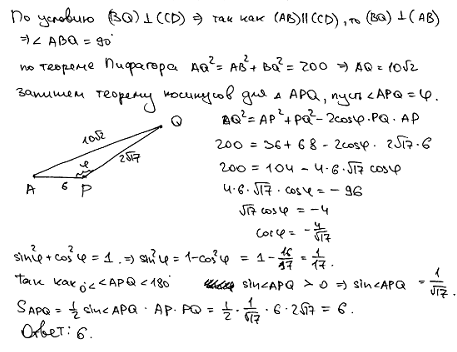 По условию (BQ) ⊥ (CD) ⇒ так как (AB)||(CD), то (BQ) ⊥ (AB)
⇒ ∠ ABQ = 90°
по теореме Пифагора AQ² = AB² + BQ² = 200 ⇒ AQ = 10√2
запишем теорему косинусов для △ APQ, пусть ∠APQ = φ.
AQ² = AP² + PQ² - 2cosφ · PQ · AP
200 = 36 + 68 - 2cosφ · 2√17 · 6
200 = 104 - 4·6·√17 cosφ
4·6·√17 · cosφ = - 96
√17 cosφ = -4
cosφ = -4/√17
Q
10√2
φ
2√17
A
6
P
sin²φ + cos²φ = 1. ⇒ sin²φ = 1 - cos²φ = 1 - 16/17 = 1/17.
так как 0° < ∠APQ < 180° sin∠APQ > 0 ⇒ sin∠APQ = 1/√17.
S APQ = 1/2 sin∠APQ · AP · PQ = 1/2 · 1/√17 · 6 · 2√17 = 6.
Ответ: 6.